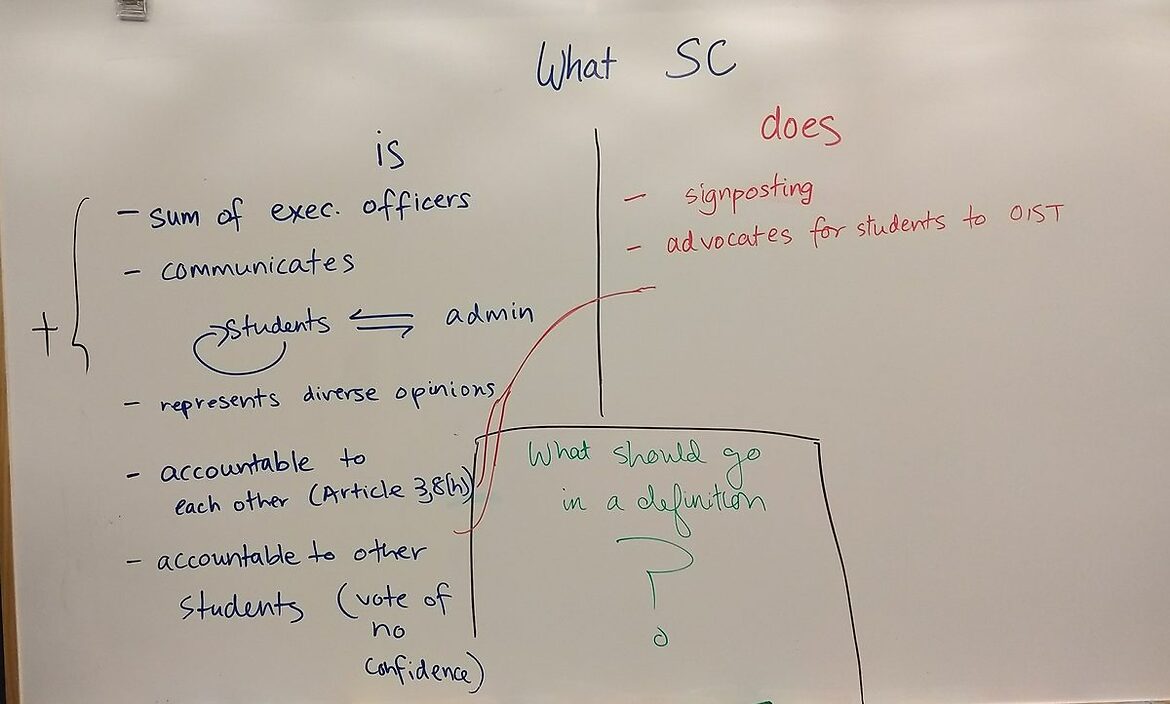 What SC
is
- sum of exec. officers
- communicates
students ⇌ admin
- represents diverse opinions
- accountable to
each other (Article 3,8(h))
- accountable to other
students (vote of
no
confidence)
+
does
- signposting
- advocates for students to OIST
What should go
in a definition
?